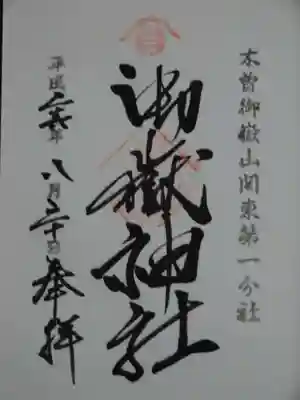 木曽御嶽山関東第一分社
御嶽神社
平成二十六年八月三十日奉拝